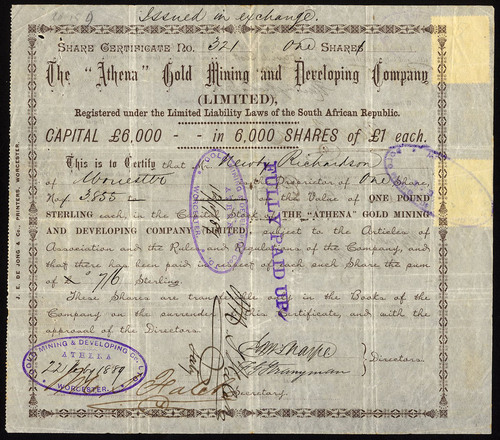 Issued in exchange.
SHARE CERTIFICATE NO. 321 One SHARES
The "Athena" Gold Mining and Developing Company
(LIMITED),
Registered under the Limited Liability Laws of the South African Republic.
CAPITAL £6,000 - - in 6,000 SHARES of £1 each.
This is to Certify that Newby Richardson
of Worcester Proprietor of One Share,
No. 3855 of the Value of ONE POUND
STERLING each, in the Capital Stock of THE "ATHENA" GOLD MINING
AND DEVELOPING COMPANY LIMITED, subject to the Articles of
Association and the Rules and Regulations of the Company, and
that there has been paid in respect of each such Share the sum
of 7/6 Sterling.
These Shares are transferable only in the Books of the
Company on the surrender of this Certificate, and with the
approval of the Directors.
Directors.
Secretary.
FULLY PAID UP
GOLD MINING & DEVELOPING CO. LTD
ATHENA
1889
WORCESTER.
J. E. DE JONG & CO., PRINTERS, WORCESTER.